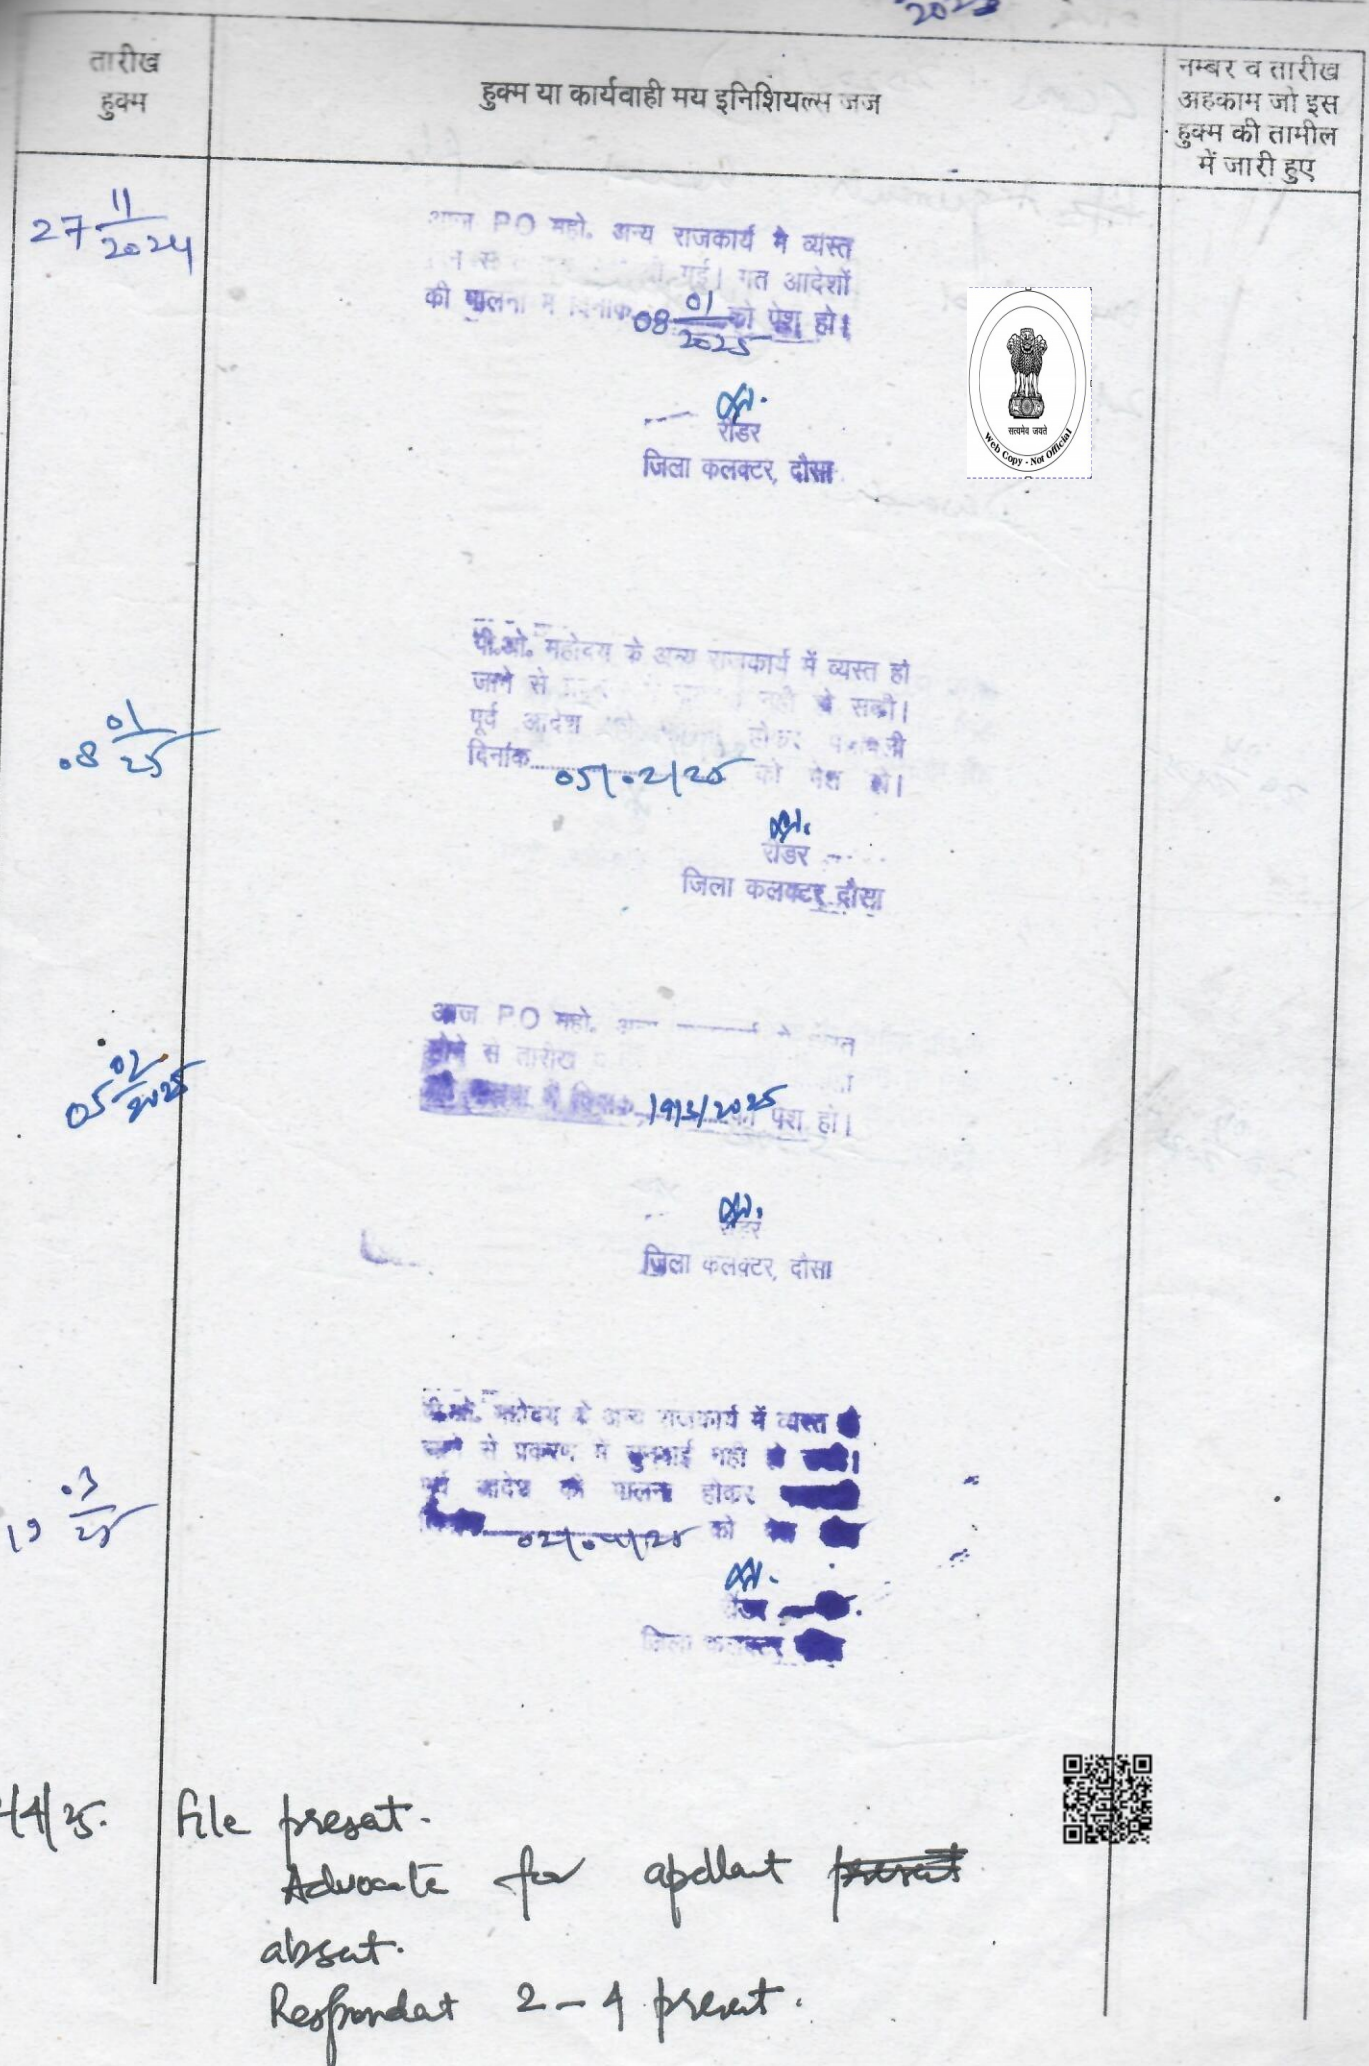 2023
तारीख
हुक्म
हुक्म या कार्यवाही मय इनिशियल्स जज
नम्बर व तारीख
अहकाम जो इस
हुक्म की तामील
में जारी हुए
27 11/2024
आज PO महो. अन्य राजकार्य मे व्यस्त
गई। गत आदेशों
की पालना में दिनांक 08 01/2025 को पेश हो।
रीडर
जिला कलक्टर, दौसा
सत्यमेव जयते
Web Copy - Not Official
08 01/25
पी.ओ. महोदय के अन्य राजकार्य में व्यस्त हो
जाने से नही हो सकी।
पूर्व आदेश होकर
दिनांक 05/02/25 को पेश हो।
रीडर
जिला कलक्टर, दौसा
05 02/2025
आज PO महो.
होने से तारीख
दिनांक 19/3/2025 को पेश हो।
रीडर
जिला कलक्टर, दौसा
19 03/25
पी.ओ. महोदय के अन्य राजकार्य में व्यस्त
जाने से प्रकरण में सुनवाई नही
पूर्व आदेश की पालना होकर
02/04/25 को पेश
रीडर
जिला कलक्टर
/4/25. File present.
Advocate for apellant
absent.
Respondent 2-4 present.